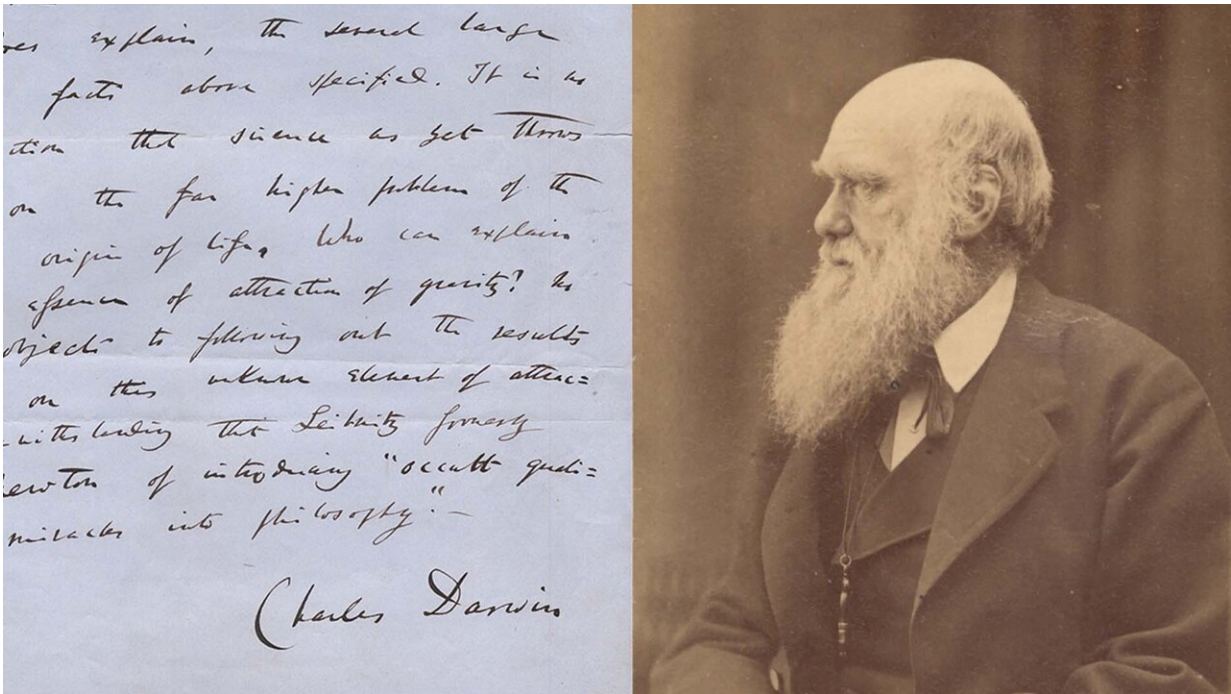 oes explain, the several large
facts above specified. It is no
ction that science as yet throws
on the far higher problem of the
origin of life. Who can explain
essence of attraction of gravity? No
objects to following out the results
on this unknown element of attrac=
-withstanding that Leibnitz formerly
ewton of introducing "occult quali=
miracles into philosophy."—
Charles Darwin